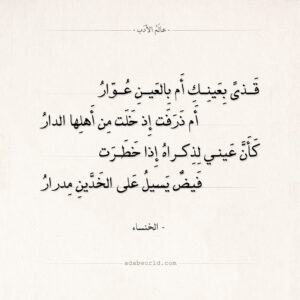 · عالَمُ الأدَب ·
قَـذىً بِعَينِـكِ أَم بِالعَيـنِ عُـوّارُ
أَم ذَرَفَت إِذ خَلَت مِن أَهلِها الدارُ
كَأَنَّ عَيني لِذِكـراهُ إِذا خَطَـرَت
فَيضٌ يَسيلُ عَلى الخَدَّينِ مِدرارُ
- الخنساء
adabworld.com